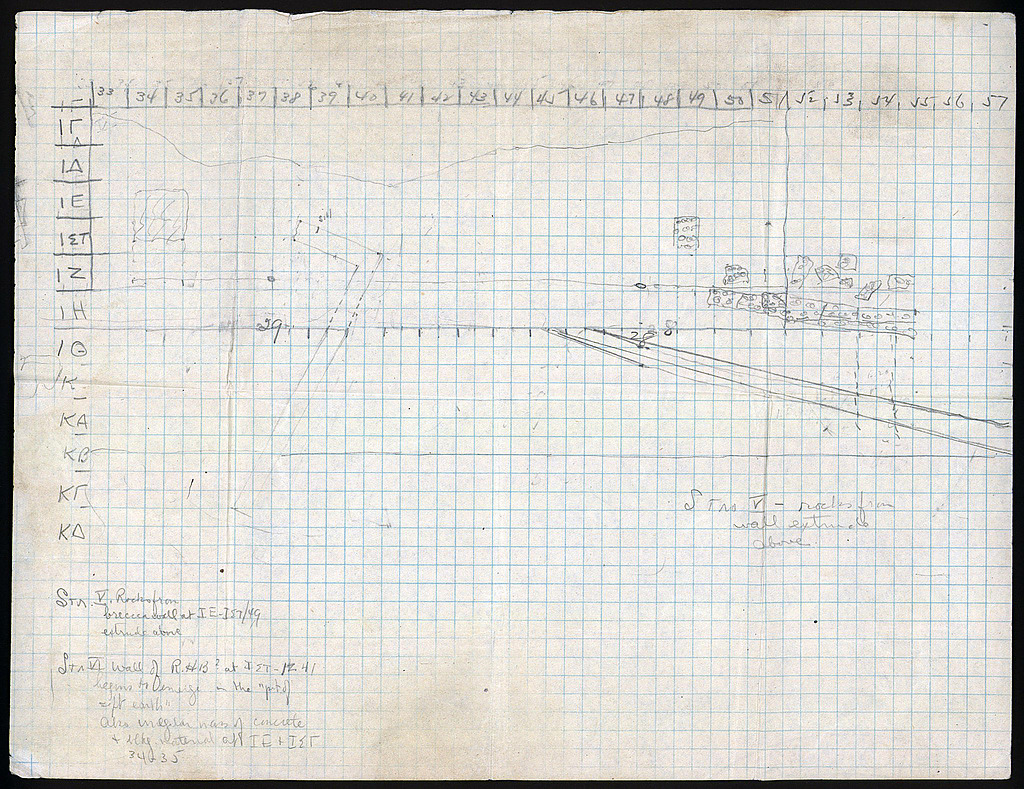 33 34 35 36 37 38 39 40 41 42 43 44 45 46 47 48 49 50 51 52 53 54 55 56 57
ΙΓ
ΙΔ
ΙΕ
ΙΣΤ
ΙΖ
ΙΗ
29 28
ΙΘ
Κ
ΚΑ
ΚΒ
ΚΓ
ΚΔ
Str. V – rocks from
wall extrude
above.
Str. V. Rocks from
breccia wall at ΙΕ-ΙΣΤ/49
extrude above
Str VI wall of R.H.B? at ΙΣΤ-ΙΖ 41
begins to emerge in the "pit of
soft earth"
Also irregular mass of concrete
+ bldg. material at ΙΕ + ΙΣΤ
34-35